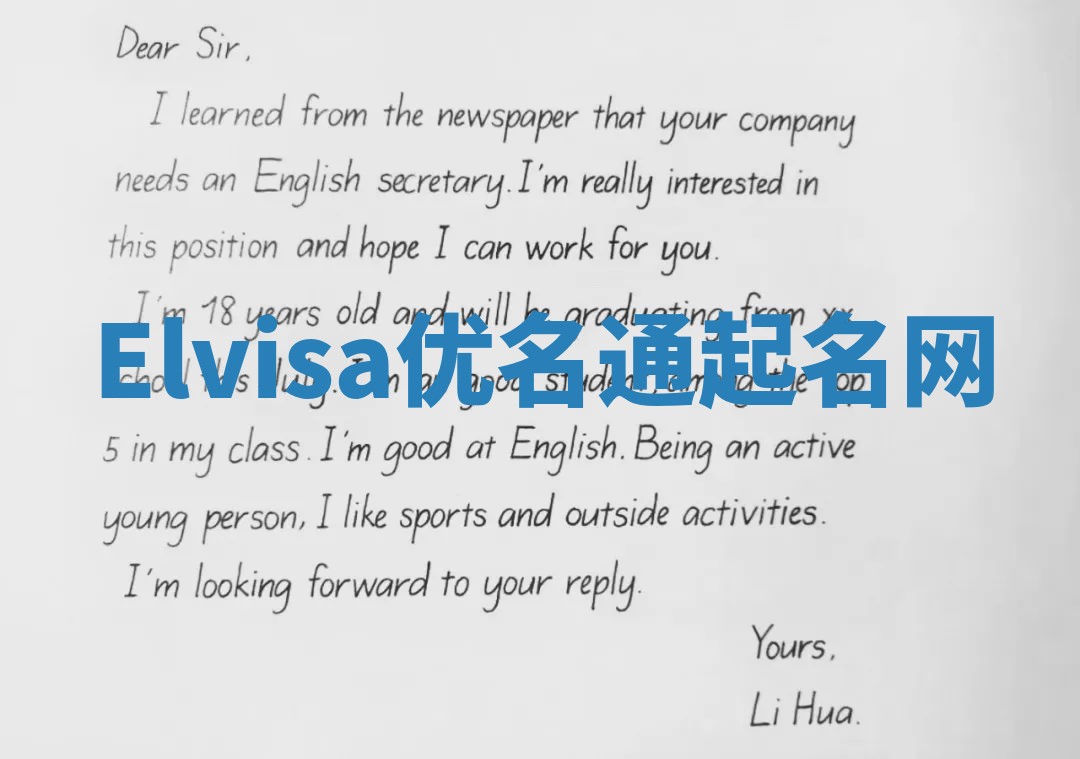 Dear Sir,
I learned from the newspaper that your company
needs an English secretary. I'm really interested in
this position and hope I can work for you.
I'm 18 years old and will be graduating from xx
Elvisa优名通起名网
school this July. I'm a good student, among the top
5 in my class. I'm good at English. Being an active
young person, I like sports and outside activities.
I'm looking forward to your reply.
Yours,
Li Hua.